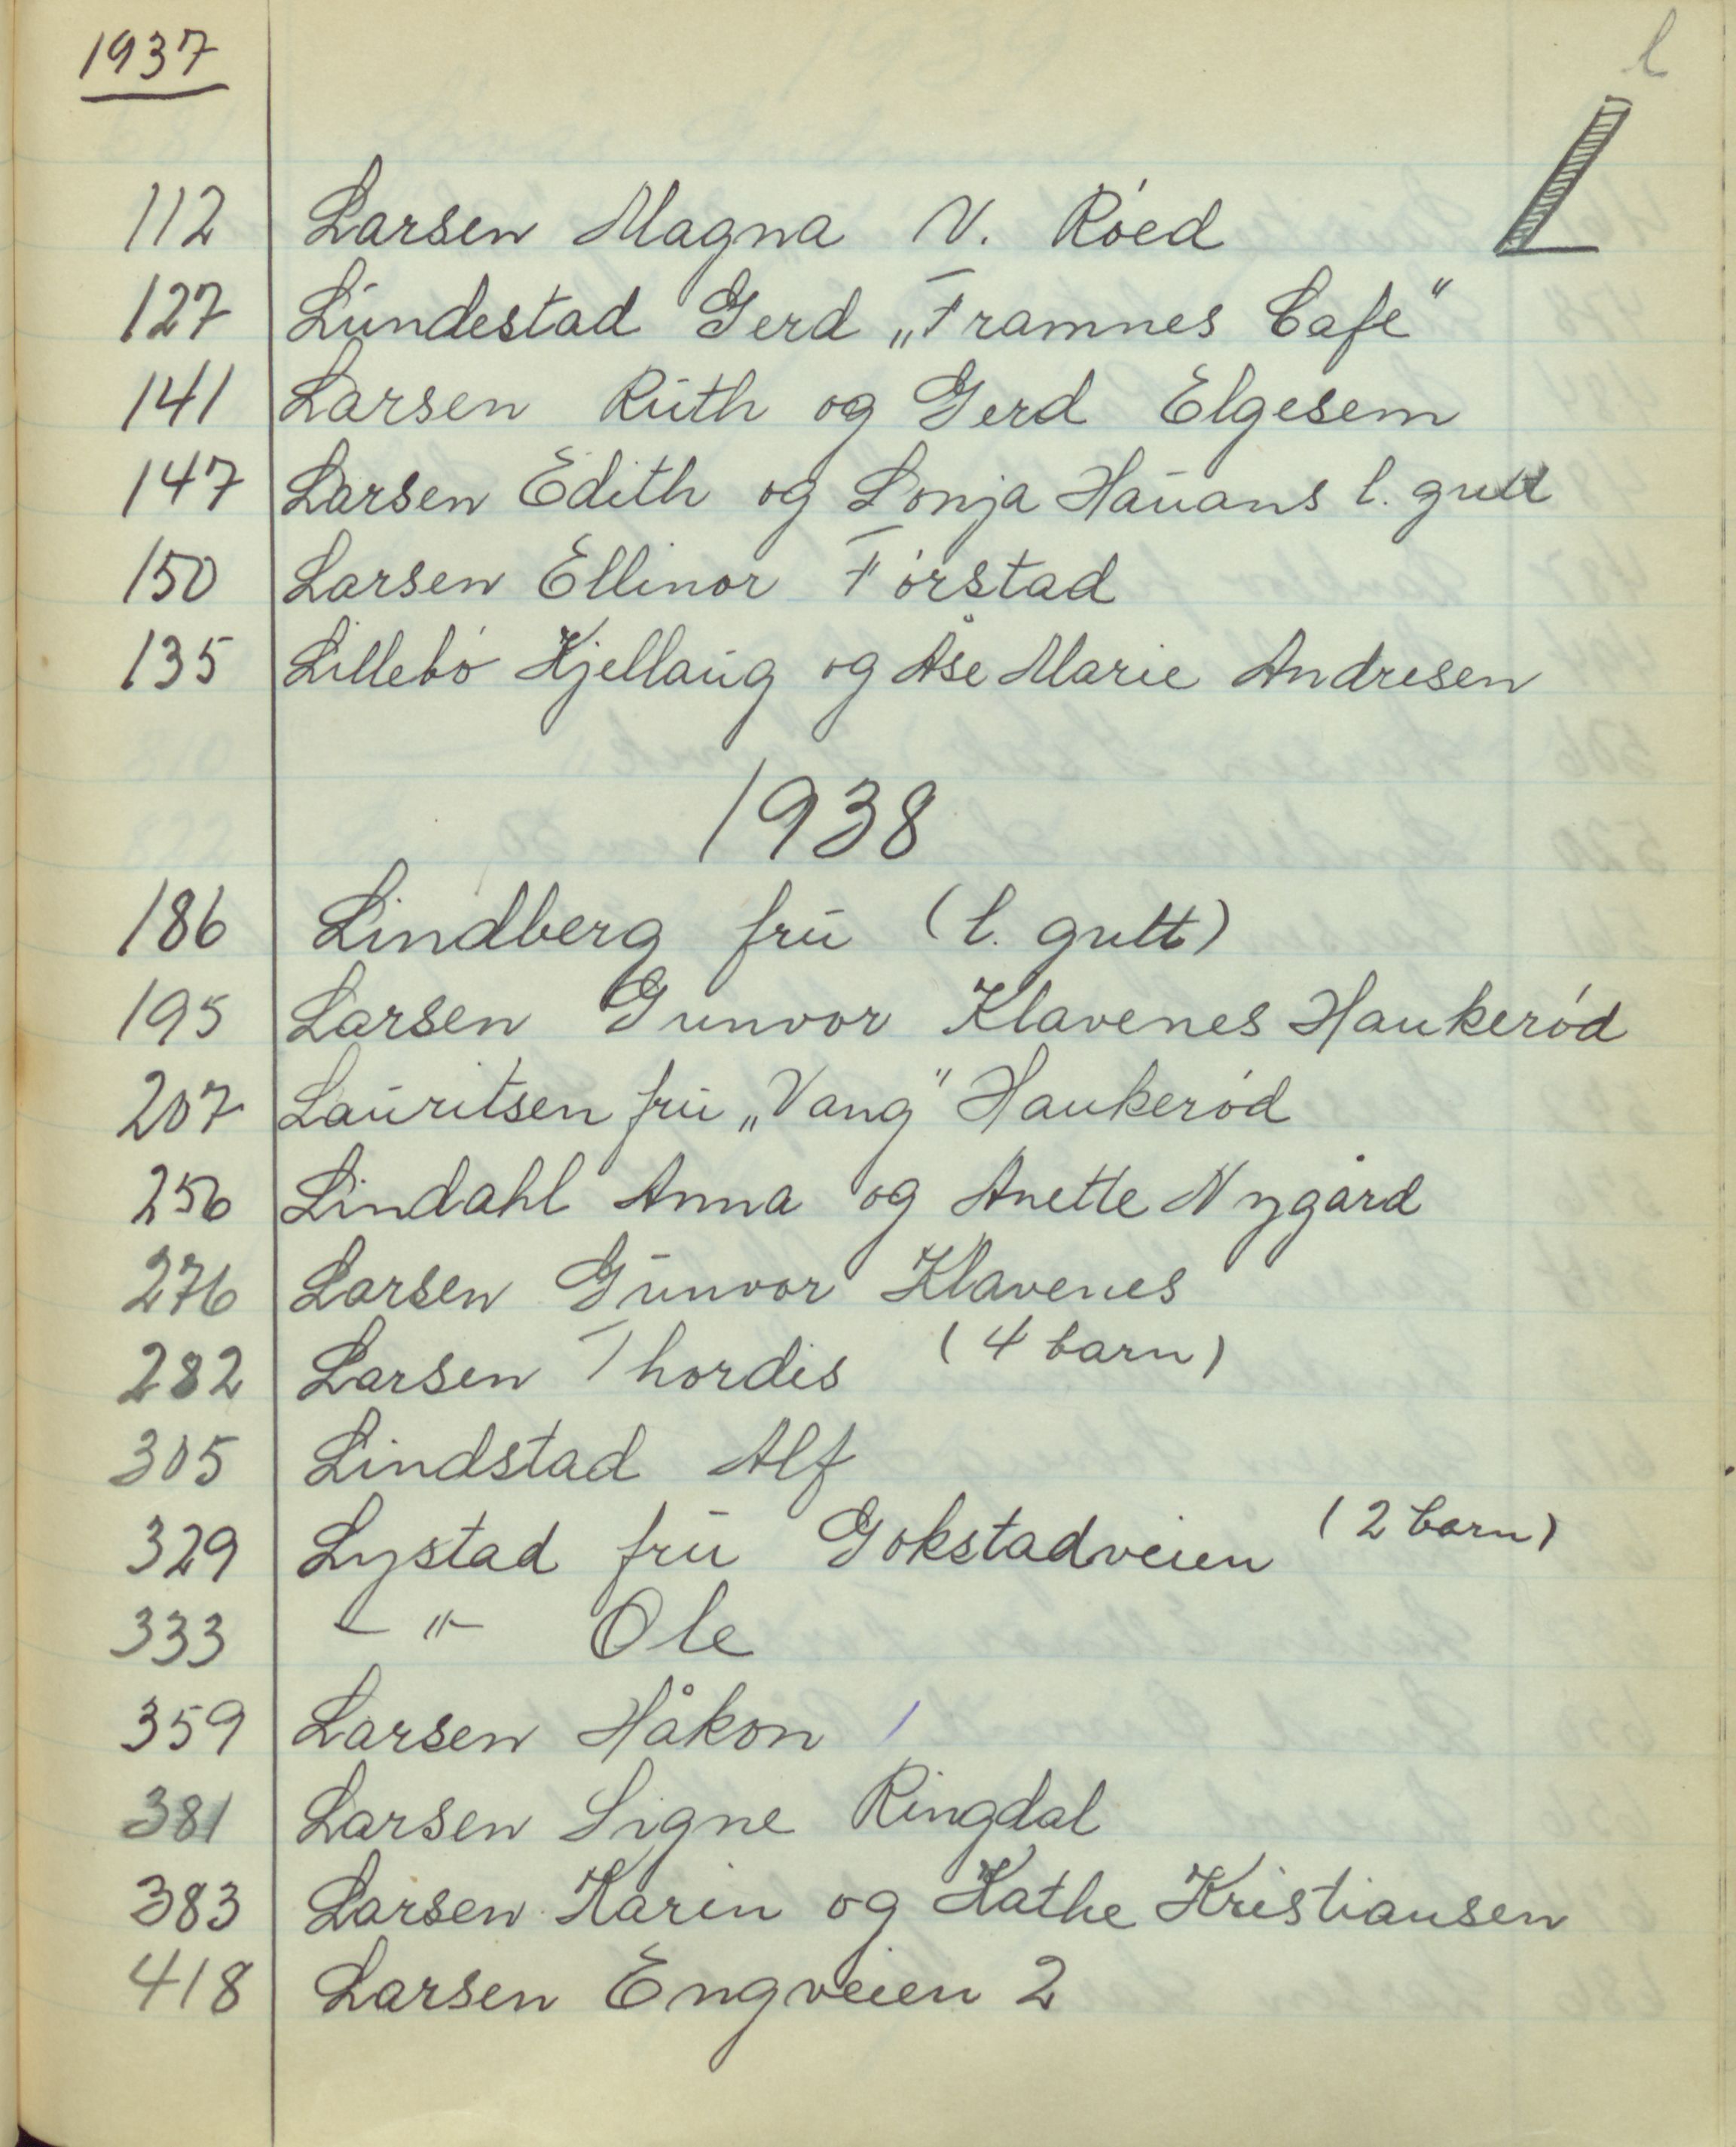 1937
l
L
112 Larsen Magna V. Røed
127 Lundestad Gerd „Framnes Cafe"
141 Larsen Ruth og Gerd Elgesem
147 Larsen Edith og Sonja Hauans l. gutt
150 Larsen Ellinor Førstad
135 Lillebø Kjellaug og Åse Marie Andresen
1938
186 Lindberg fru (l. gutt)
195 Larsen Gunvor Klavenes Haukerød
207 Lauritsen fru „Vang" Haukerød
256 Lindahl Anna og Anette Nygård
276 Larsen Gunvor Klavenes
282 Larsen Thordis (4 barn)
305 Lindstad Alf
329 Lystad fru Gokstadveien (2 barn)
333 - " - Ole
359 Larsen Håkon
381 Larsen Signe Ringdal
383 Larsen Karin og Kathe Kristiansen
418 Larsen Engveien 2